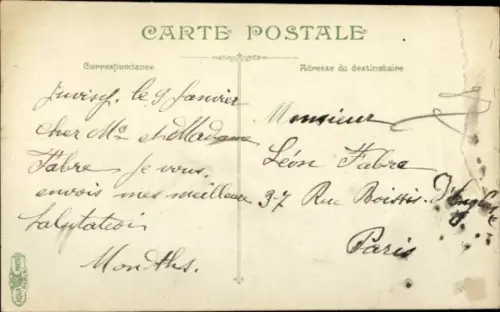 CARTE POSTALE
Correspondance
Adresse du destinataire
Juvisy, le 9 Janvier
Cher Mr et Madame
Fabre je vous
envois mes meilleure
salutation
Monsieur
Léon Fabre
37 Rue Boissis. D'Anglas
Paris